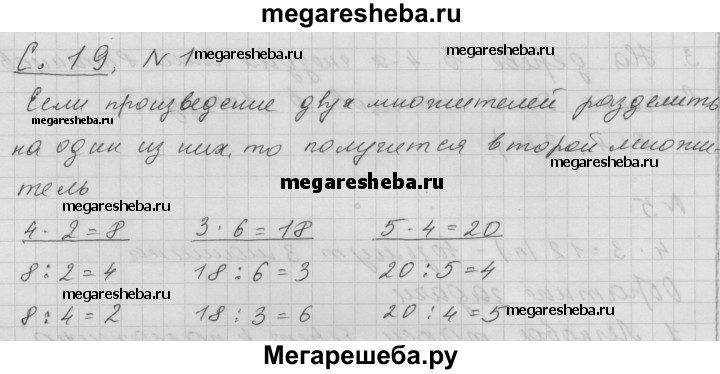 megaresheba.ru
С. 19. N 1 megaresheba.ru
megaresheba.ru
Если произведение двух множителей разделить
megaresheba.ru megaresheba.ru
на один из них, то получится второй множи-
тель
megaresheba.ru
4 · 2 = 8 3 · 6 = 18 5 · 4 = 20
megaresheba.ru megaresheba.ru
8 : 2 = 4 18 : 6 = 3 20 : 5 = 4
megaresheba.ru
8 : 4 = 2 18 : 3 = 6 20 : 4 = 5
megaresheba.ru megaresheba.ru
Мегарешеба.ру